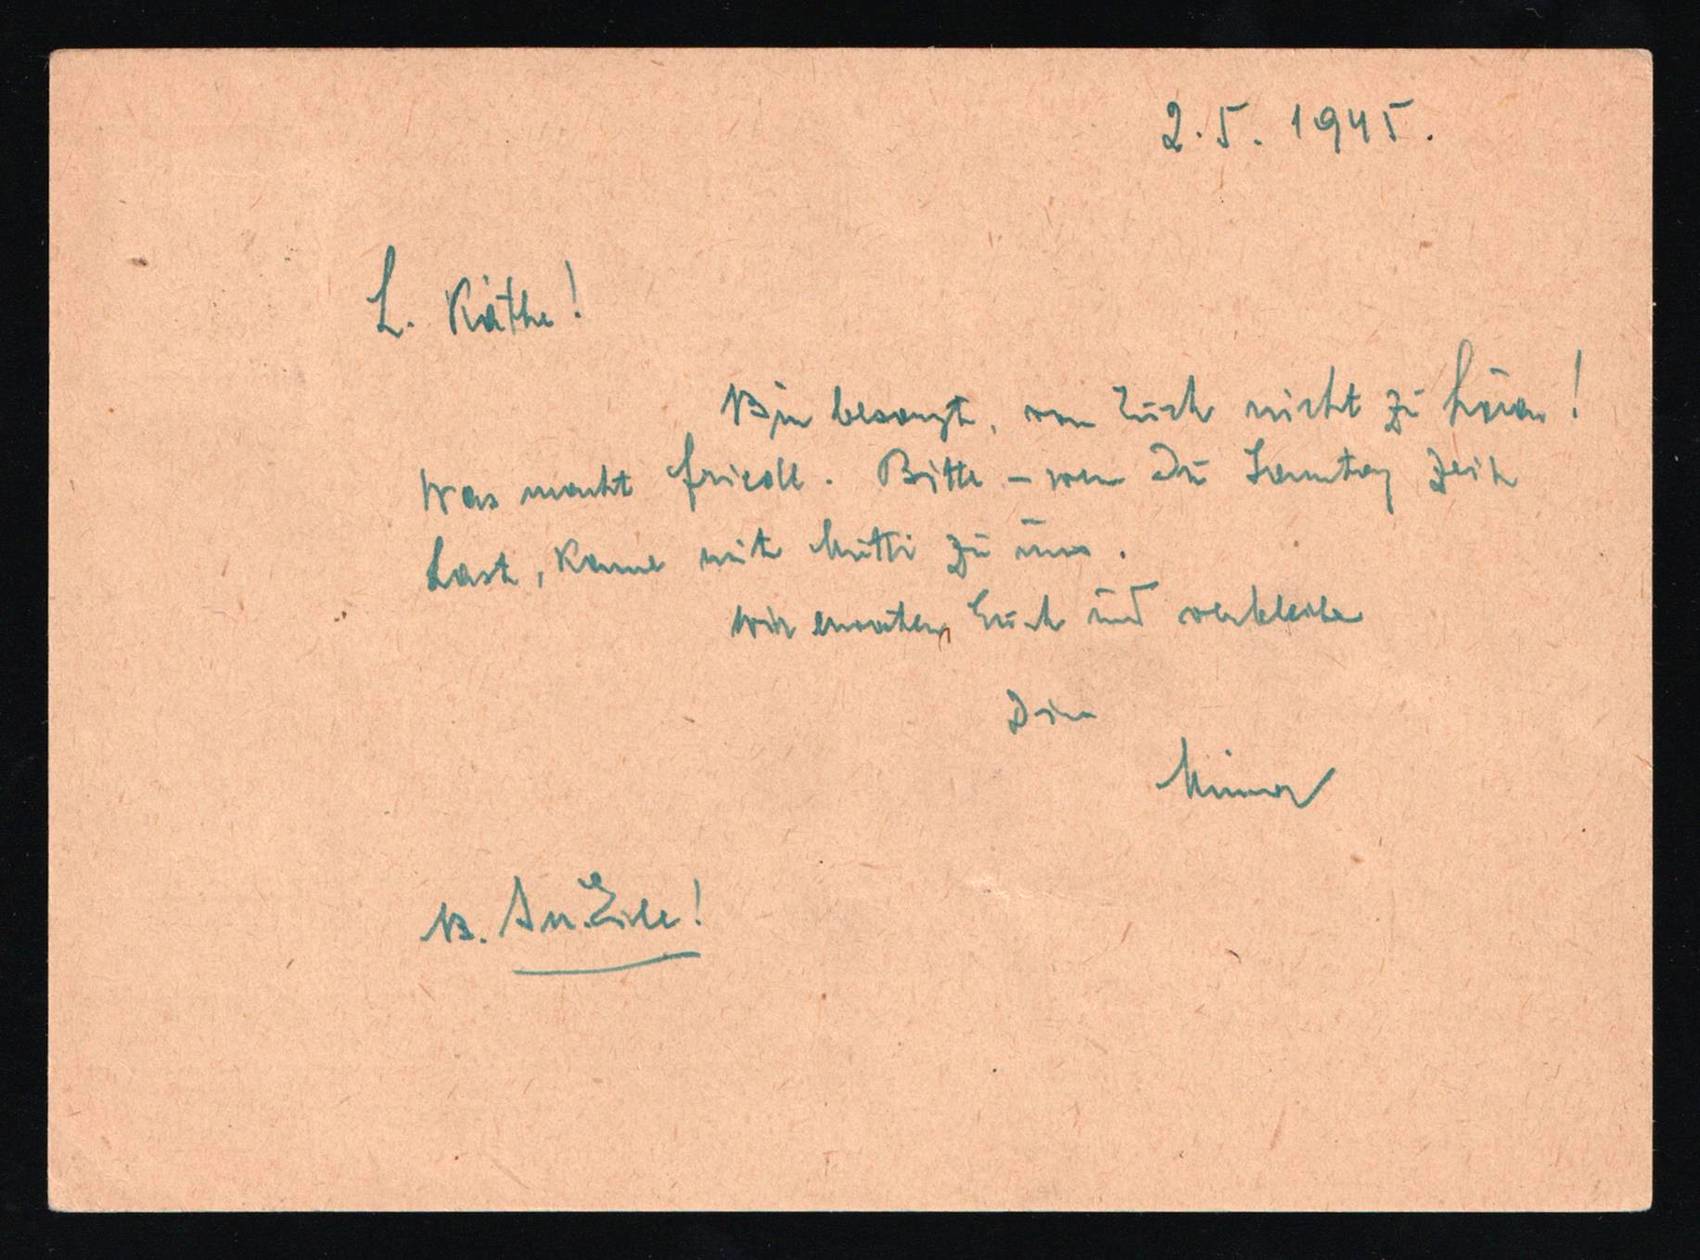 2.5. 1945.
L. Käthe!
Bin besorgt, von Euch nicht zu hören!
Was macht Friedl. Bitte – wenn Du Sonntag Zeit
hast, komme mit Mutti zu uns.
Wir erwarten Euch und verbleibe
Dein
In Eile!